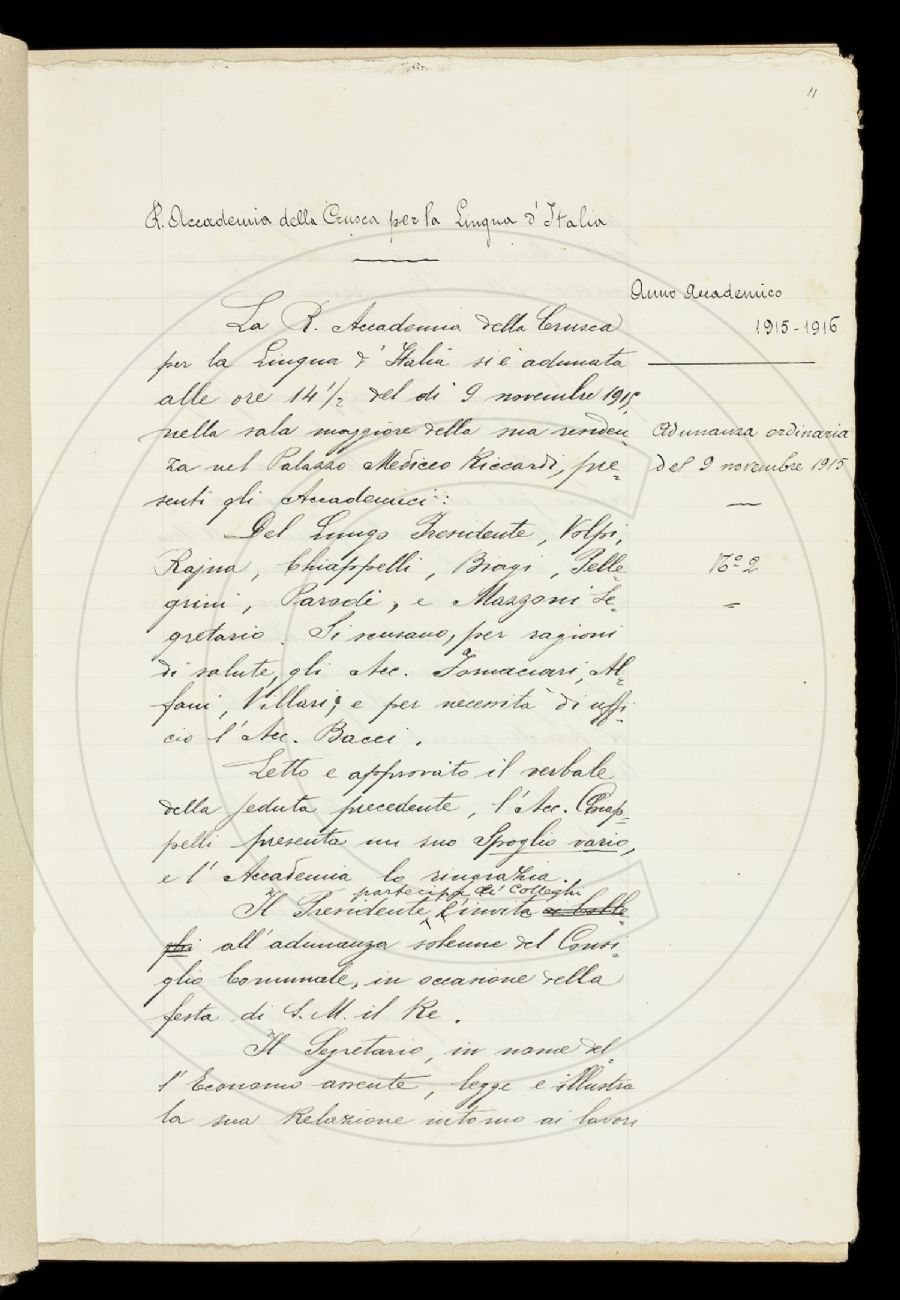 11
R. Accademia della Crusca per la Lingua d'Italia
Anno Accademico
1915-1916
Adunanza ordinaria
del 9 novembre 1915
N.o 2
La R. Accademia della Crusca
per la Lingua d'Italia si è adunata
alle ore 14 1/2 del dì 9 novembre 1915,
nella sala maggiore della sua residen
za nel Palazzo Mediceo Riccardi, pre=
senti gli Accademici:
Del Lungo Presidente, Volpi,
Rajna, Chiappelli, Biagi, Pelle=
grini, Parodi, e Mazzoni Se=
gretario. Si scusano, per ragioni
di salute, gli Acc. Fornaciari, Al=
fani, Villari; e per necessità di uffi=
cio l'Acc. Bacci.
Letto e approvato il verbale
della seduta precedente, l'Acc. Chiap=
pelli presenta un suo Spoglio vario,
e l'Accademia lo ringrazia.
partecipa ai Colleghi
Il Presidente, l'invito ai Colle
ghi all'adunanza solenne del Consi=
glio Comunale, in occasione della
festa di S. M. il Re.
Il Segretario, in nome del=
l'Economo assente, legge e illustra
la sua Relazione intorno ai lavori